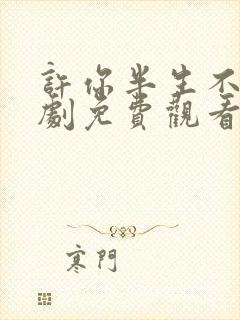 許你半生不
劇免費觀看
寒門